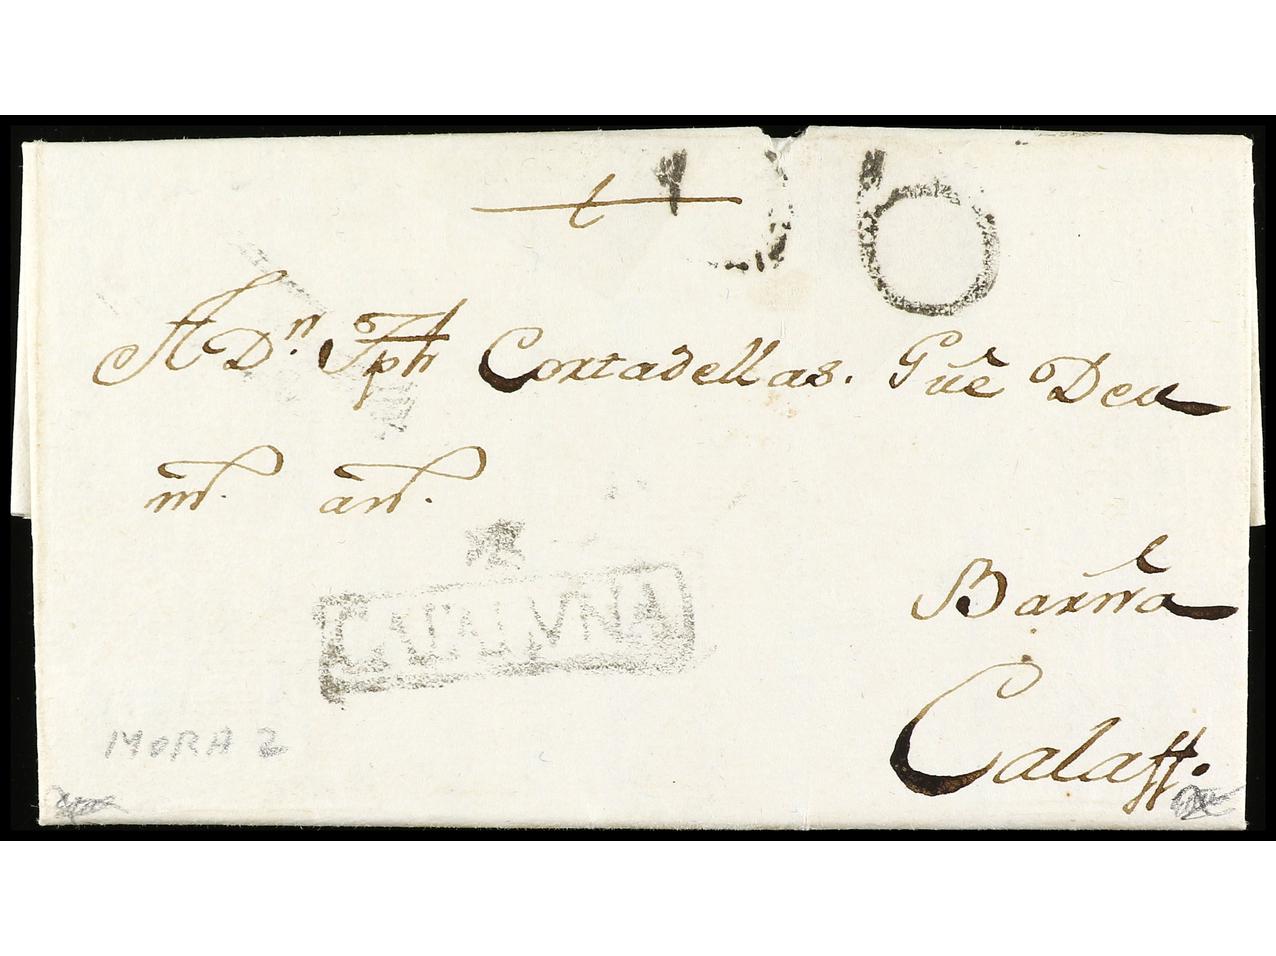 6
A Dn. Jph Cortadellas. Gue Deu
m. an.
CATALVÑA
Barna
Calaff.
MORA 2